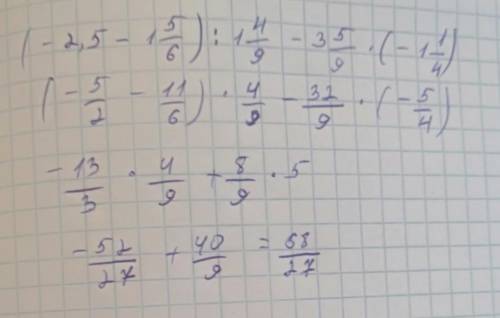 (-2,5 - 1 5/6) : 1 4/9 - 3 5/9 · (-1 1/4)
(-5/2 - 11/6) · 4/9 - 32/9 · (-5/4)
-13/3 · 4/9 + 8/9 · 5
-52/27 + 40/9 = 68/27